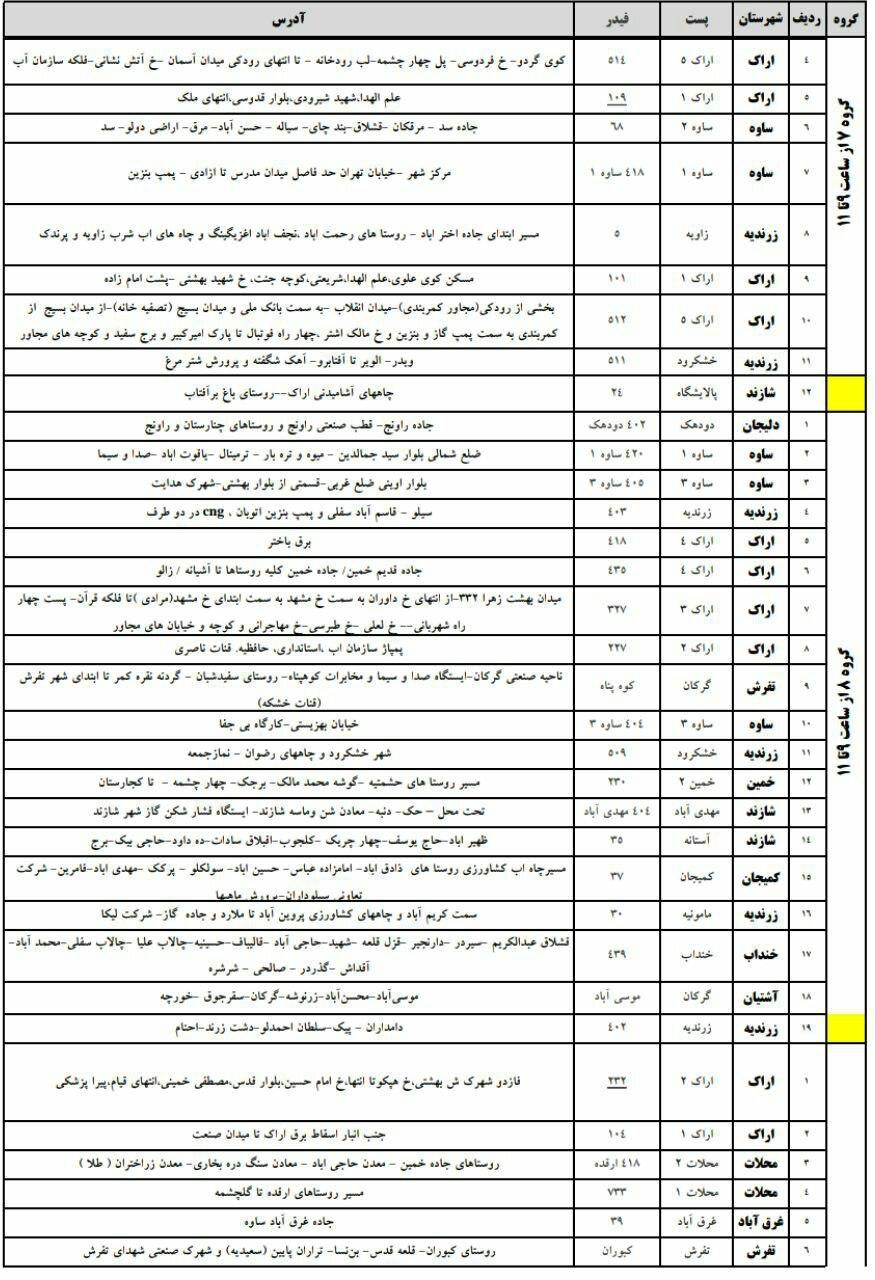 گروه ردیف شهرستان پست فیدر آدرس
گروه ۷ از ساعت ۹ تا ۱۱
۴ اراک اراک ۵ ۵۱۴ کوی گردو- خ فردوسی- پل چهار چشمه-لب رودخانه - تا انتهای رودکی میدان آسمان -خ آتش نشانی-فلکه سازمان آب
۵ اراک اراک ۱ ۱۰۹ علم الهدا،شهید شیرودی،بلوار قدوسی،انتهای ملک
۶ ساوه ساوه ۲ ۶۸ جاده سد - مرقکان -قشلاق-بند چای- سیاله - حسن آباد- مرق- اراضی دولو- سد
۷ ساوه ساوه ۱ ۴۱۸ ساوه ۱ مرکز شهر -خیابان تهران حد فاصل میدان مدرس تا ازادی - پمپ بنزین
۸ زرندیه زاویه ۵ مسیر ابتدای جاده اختر اباد - روستا های رحمت اباد ،نجف اباد اغزیگینگ و چاه های اب شرب زاویه و پرندک
۹ اراک اراک ۱ ۱۰۱ مسکن کوی علوی،علم الهدا،شریعتی،کوچه جنت، خ شهید بهشتی -پشت امام زاده
۱۰ اراک اراک ۵ ۵۱۲ بخشی از رودکی(مجاور کمربندی)-میدان انقلاب -به سمت بانک ملی و میدان بسیج (تصفیه خانه)-از میدان بسیج از
کمربندی به سمت پمپ گاز و بنزین و خ مالک اشتر ،چهار راه فوتبال تا پارک امیرکبیر و برج سفید و کوچه های مجاور
۱۱ زرندیه خشکرود ۵۱۱ ویدر- الویر تا آفتابرو- آهک شگفته و پرورش شتر مرغ
۱۲ شازند پالایشگاه ۲۴ چاههای آشامیدنی اراک--روستای باغ برآفتاب
گروه ۸ از ساعت ۹ تا ۱۱
۱ دلیجان دودهک ۴۰۲ دودهک جاده راونج- قطب صنعتی راونج و روستاهای چنارستان و راونج
۲ ساوه ساوه ۱ ۴۲۰ ساوه ۱ ضلع شمالی بلوار سید جمالدین - میوه و تره بار - ترمینال -یاقوت اباد -صدا و سیما
۳ ساوه ساوه ۳ ۴۰۵ ساوه ۳ بلوار اوینی ضلع غربی-قسمتی از بلوار بهشتی-شهرک هدایت
۴ زرندیه زرندیه ۴۰۳ سیلو - قاسم آباد سفلی و پمپ بنزین اتوبان ، cng در دو طرف
۵ اراک اراک ۴ ۴۱۸ برق باختر
۶ اراک اراک ۴ ۴۳۵ جاده قدیم خمین/ جاده خمین کلیه روستاها تا آشیانه / زالو
۷ اراک اراک ۳ ۳۲۷ میدان بهشت زهرا ۳۳۲-از انتهای خ داوران به سمت خ مشهد به سمت ابتدای خ مشهد(مرادی )تا فلکه قرآن- پست چهار
راه شهربانی-- خ لعلی -خ طبرسی-خ مهاجرانی و کوچه و خیابان های مجاور
۸ اراک اراک ۲ ۲۲۷ پمپاژ سازمان اب ،استانداری، حافظیه. قنات ناصری
۹ تفرش گرکان کوه پناه ناحیه صنعتی گرکان-ایستگاه صدا و سیما و مخابرات کوهپناه- روستای سفیدشبان - گردنه نقره کمر تا ابتدای شهر تفرش
(قنات خشکه)
۱۰ ساوه ساوه ۳ ۴۰۴ ساوه ۳ خیابان بهزیستی-کارگاه بی جفا
۱۱ زرندیه خشکرود ۵۰۹ شهر خشکرود و چاههای رضوان - نمازجمعه
۱۲ خمین خمین ۲ ۲۳۰ مسیر روستا های حشمتیه -گوشه محمد مالک- برجک- چهار چشمه - تا کجارستان
۱۳ شازند مهدی آباد ۴۰۴ مهدی آباد تحت محل – حک- دنبه- معادن شن وماسه شازند- ایستگاه فشار شکن گاز شهر شازند
۱۴ شازند آستانه ۳۵ ظهیر اباد-حاج یوسف-چهار چریک -کلجوب-اقبلاق سادات-ده داود-حاجی بیک-برج
۱۵ کمیجان کمیجان ۳۷ مسیرچاه اب کشاورزی روستا های ذادق اباد- امامزاده عباس- حسین اباد- سولکلو - پرکک -مهدی اباد-قامرین- شرکت
تعاونی سیلوداران-پرورش ماهیها
۱۶ زرندیه مامونیه ۳۰ سمت کریم آباد و چاههای کشاورزی پروین آباد تا ملارد و جاده گاز- شرکت لیکا
۱۷ خنداب خنداب ۴۳۹ قشلاق عبدالکریم -سیردر -دارنجیر- قزل قلعه -شهید-حاجی آباد -قالیباف-حسینیه-چالاب علیا -چالاب سفلی-محمد آباد-
آقداش -گذردر - صالحی - شرشره
۱۸ آشتیان گرکان موسی آباد موسی‌آباد-محسن‌آباد-زرنوشه-گرکان-سقرجوق -خورچه
۱۹ زرندیه زرندیه ۴۰۲ دامداران - پیک-سلطان احمدلو-دشت زرند-احتام
۱ اراک اراک ۲ ۲۳۲ فازدو شهرک ش بهشتی،خ هپکوتا انتها،خ امام حسین،بلوار قدس،مصطفی خمینی،انتهای قیام،پیرا پزشکی
۲ اراک اراک ۱ ۱۰۴ جنب انبار اسقاط برق اراک تا میدان صنعت
۳ محلات محلات ۲ ۴۱۸ ارقده روستاهای جاده خمین - معدن حاجی اباد - معادن سنگ دره بخاری- معدن زراختران ( طلا )
۴ محلات محلات ۱ ۷۳۳ مسیر روستاهای ارقده تا گلچشمه
۵ غرق آباد غرق آباد ۳۹ جاده غرق آباد ساوه
۶ تفرش تفرش کبوران روستای کبوران- قلعه قدس- بن‌نسا- تراران پایین (سعیدیه) و شهرک صنعتی شهدای تفرش